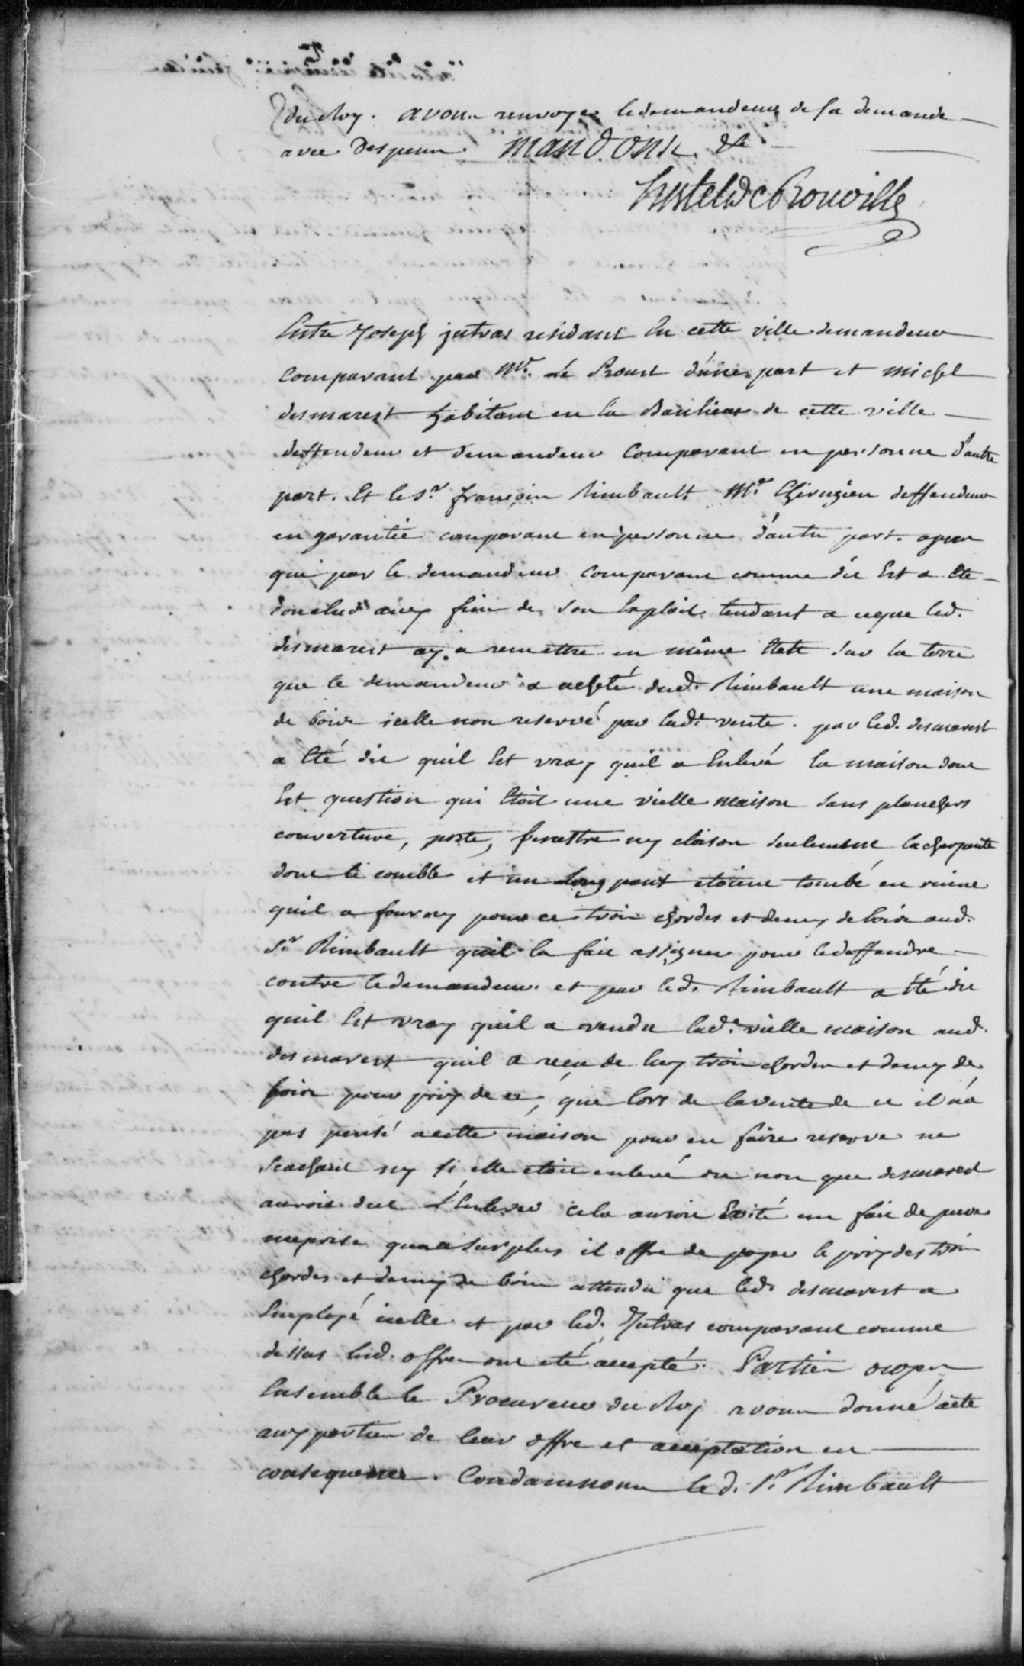 du Roy. avons renvoyé le demandeur de sa demande
avec Despens. Mandons &a
hertel De Rouville
Entre Joseph jutras residant En cette ville demandeur
comparant par Me. Le Proust d'une part et michel
desmarest habitant en la Banlieue de cette ville
deffendeur et demandeur comparant en personne d'autre
part. Et le Sr. françois Rimbault Me. Chirugien deffendeur
en garantie comparant en personne d'autre part. apres
que par le demandeur comparant comme dit Est a Ete
conclud aux fins de son Exploit tendant a ceque led.
desmarest ay a remettre en même Etat sur la terre
que le demandeur a acheté dud. Rimbault une maison
de bois icelle non reservé par lad. vente. par led. desmarest
a Eté dit quil Est vray quil a Enlevé la maison dont
Est question qui Etoit une vielle maison sans planchers
couverture, porte, fenestre ny cloison seulement la charpente
dont le comble et un long pant etoient tombé en ruine
quil a fourny pour ce trois chordes et demy de bois aud.
Sr. Rimbault quil la fait assigner pour le deffendre
contre le demandeur. et par led. Rimbault a Eté dit
quil Est vray quil a vendu lad. vielle maison aud.
desmarest quil a reçu de luy trois chordes et demy de
bois pour prix de ce, que lors de la vente de ce il n'a
pas pensé a cette maison pour en faire reserve ne
scachant ny si elle etoit enlevé ou non que desmarest
auroit dut l'Enlever cela auroit Evité un fait de pure
meprise quau surplus il offre de payer le prix des trois
chordes et demy de bois attendu que led. desmarest a
Employé icelle. et par led. Jutras comparant comme
dessus lesd. offres ont été accepté. Parties ouyes
Ensemble le Procureur du Roy avons donné acte
aux parties de leur offre et acceptation en
consequence. Condamnons led. Sr. Rimbault